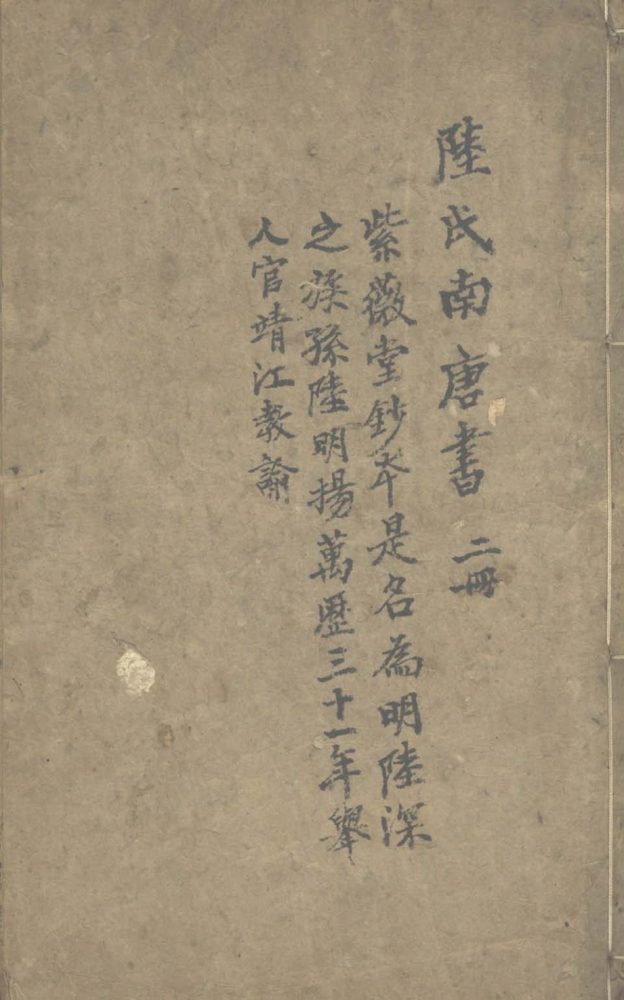 陸氏南唐書 二冊
紫薇堂鈔本是名為明陸深
之族孫陸明揚萬歷三十一年舉
人官靖江教諭